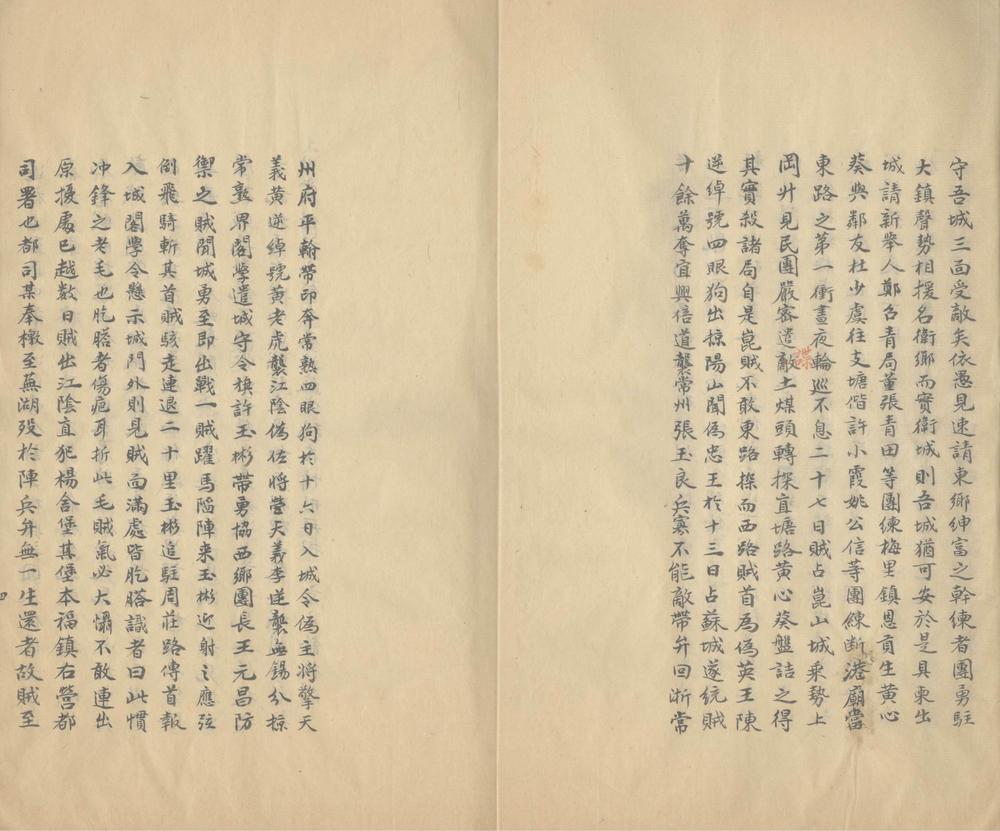 守吾城三面受敵矣依愚見速請東鄉紳富之幹練者團勇駐
大鎮聲勢相援名衛鄉而實衛城則吾城猶可安於是具柬出
城請新舉人鄭召青局董張青田等團練梅里鎮恩貢生黃心
葵與鄰友杜少虞往支塘偕許小霞姚公信等團練斷港廟當
東路之第一衝晝夜輪巡不息二十七日賊占崑山城乘勢上
岡廾見民團嚴密遣敵諜土煤頭轉探直塘路黃心葵盤詰之得
其實殺諸局自是崑賊不敢東路探而西路賊首為偽英王陳
逆綽號四眼狗出掠陽山聞偽忠王於十三日占蘇城遂統賊
十餘萬奪宜興信道襲常州張玉良兵寡不能敵帶弁回浙常
州府平翰帶印奔常熟四眼狗於十六日入城令偽主將擎天
義黃逆綽號黃老虎襲江陰偽佐將營天義李逆襲無錫分掠
常熟界閣學遣城守令旗許玉彬帶勇協西鄉團長王元昌防
禦之賊聞城勇至即出戰一賊躍馬陷陣来玉彬迎射之應弦
倒飛騎斬其首賊駭走連退二十里玉彬追駐周莊路傳首報
入城閣學令懸示城門外則見賊面滿處皆肐𦡱識者曰此慣
冲鋒之老毛也肐𦡱者傷疤耳折此毛賊氣必大懾不敢連出
原擾處巳越數日賊出江陰直犯楊舍堡其堡本福鎮右營都
司署也都司某奉檄至蕪湖殁於陣兵弁無一生還者故賊至
四